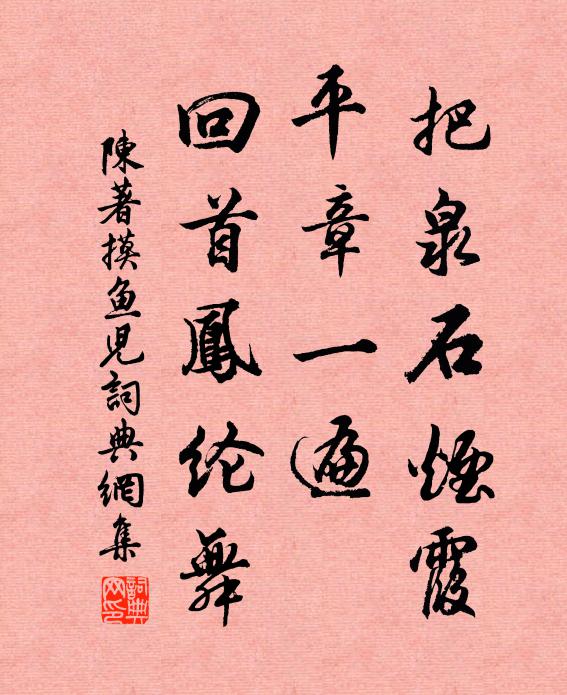 把泉石煙霞
平章一遍
回首鳳纶舞
陳著摸魚児詞典網集
詞典网印